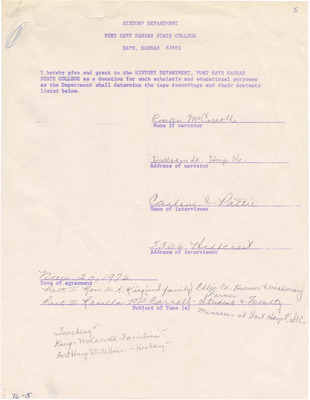 5
HISTORY DEPARTMENT
FORT HAYS KANSAS STATE COLLEGE
HAYS, KANSAS 67601
I hereby give and grant to the HISTORY DEPARTMENT, FORT HAYS KANSAS
STATE COLLEGE as a donation for such scholarly and educational purposes
as the Department shall determine the tape recordings and their contents
listed below.
Rosella McCarroll
Name of narrator
Halladay St. Hays Ks.
Address of narrator
E. Pattie
Name of interviewer
Hillcrest
Address of interviewer
20, 1976
Date of agreement
Part I Rev. A. R. King (and family) Ellis Co. Pioneer & Missionary
Farmer
Part II Rosella McCarroll - Student & Faculty
Member at Fort Hays
Subject of Tape (s)
Teaching
King-McCarroll Families
Fort Hays State Univ. - History
76-5